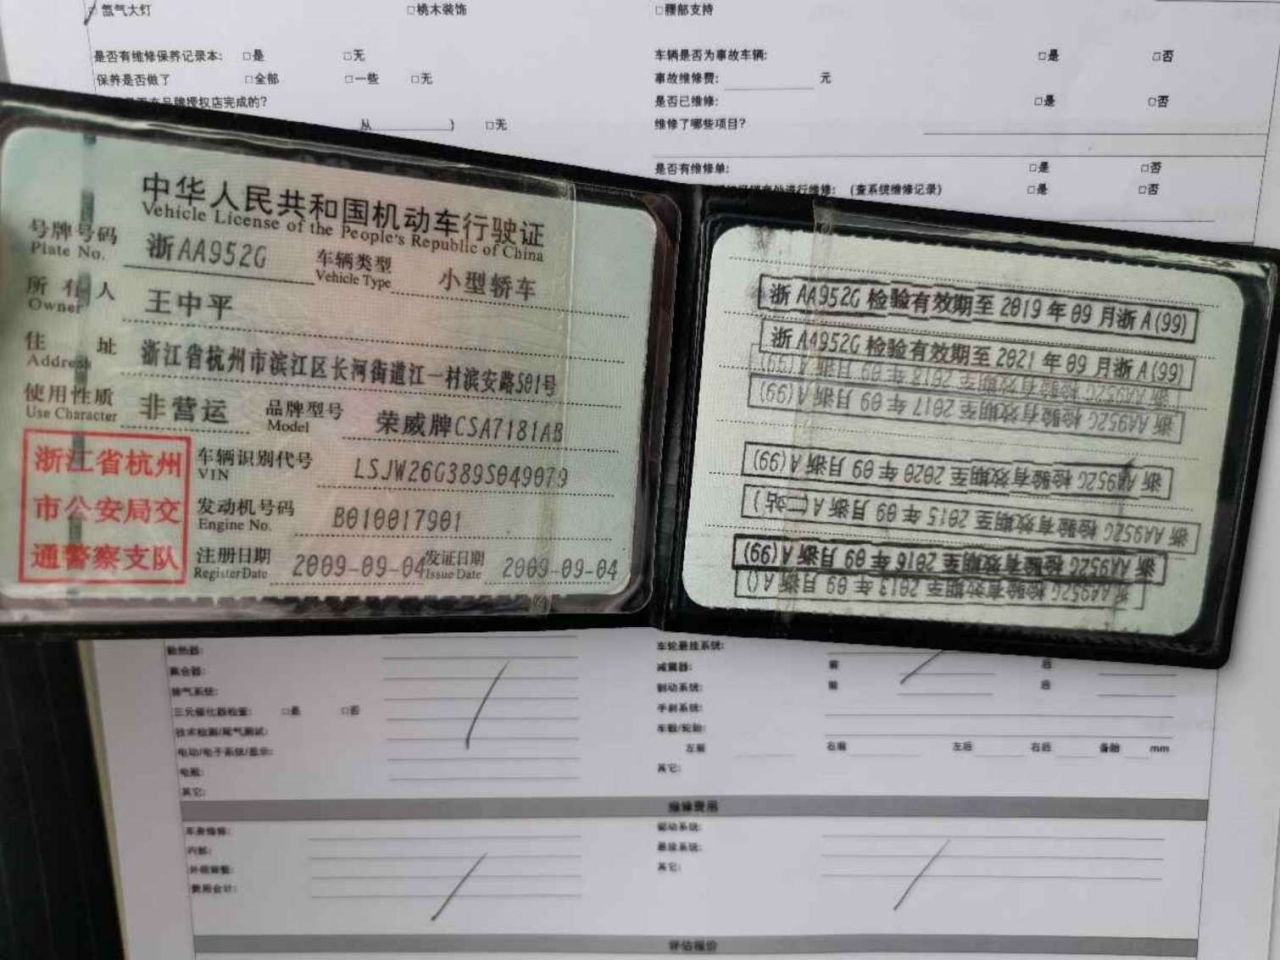 氙气大灯 □桃木装饰 □腰部支持
是否有维修保养记录本: □是 □无 车辆是否为事故车辆: □是 □否
保养是否做了 □全部 □一些 □无 事故维修费: 元
品牌授权店完成的? 是否已维修: □是 □否
从 ) □无 维修了哪些项目?
是否有维修单: □是 □否
进行维修: (查系统维修记录) □是 □否
中华人民共和国机动车行驶证
Vehicle License of the People's Republic of China
号牌号码 浙AA952G 车辆类型 小型轿车
Plate No. Vehicle Type
所有人 王中平
Owner
住址 浙江省杭州市滨江区长河街道江一村滨安路501号
Address
使用性质 非营运 品牌型号 荣威牌CSA7181AB
Use Character Model
浙江省杭州
市公安局交
通警察支队
车辆识别代号 LSJW26G389S049079
VIN
发动机号码 B010017901
Engine No.
注册日期 2009-09-04 发证日期 2009-09-04
Register Date Issue Date
浙AA952G检验有效期至2019年09月浙A(99)
浙AA952G检验有效期至2021年09月浙A(99)
浙AA952G检验有效期至2018年09月浙A(99)
浙AA952G检验有效期至2017年09月浙A(99)
浙AA952G检验有效期至2020年09月浙A(99)
浙AA952G检验有效期至2015年09月浙A(二站)
浙AA952G检验有效期至2016年09月浙A(99)
浙AA952G检验有效期至2013年09月浙A()
散热器: 车轮悬挂系统:
离合器: 减震器: 前 后
排气系统: 制动系统: 前 后
三元催化器检查: □是 □否 手刹系统:
技术检测/尾气测试: 车毂/轮胎:
电动/电子系统/显示: 左前 右前 左后 右后 备胎 mm
电瓶: 其它:
其它:
维修费用
车身维修: 驱动系统:
内部: 悬挂系统:
外观骨骼: 其它:
费用合计:
评估报价